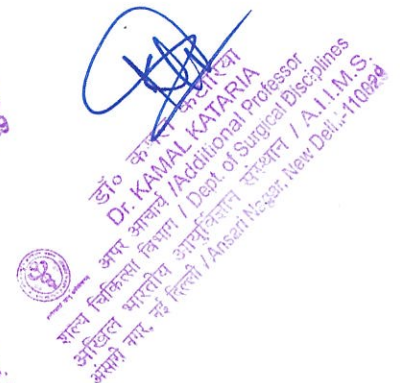 डॉ० कमल कटारिया
Dr. KAMAL KATARIA
अपर आचार्य /Additional Professor
शल्य चिकित्सा विभाग / Dept. of Surgical Disciplines
अखिल भारतीय आयुर्विज्ञान संस्थान / A.I.I.M.S.
अंसारी नगर, नई दिल्ली / Ansari Nagar, New Delhi-110029